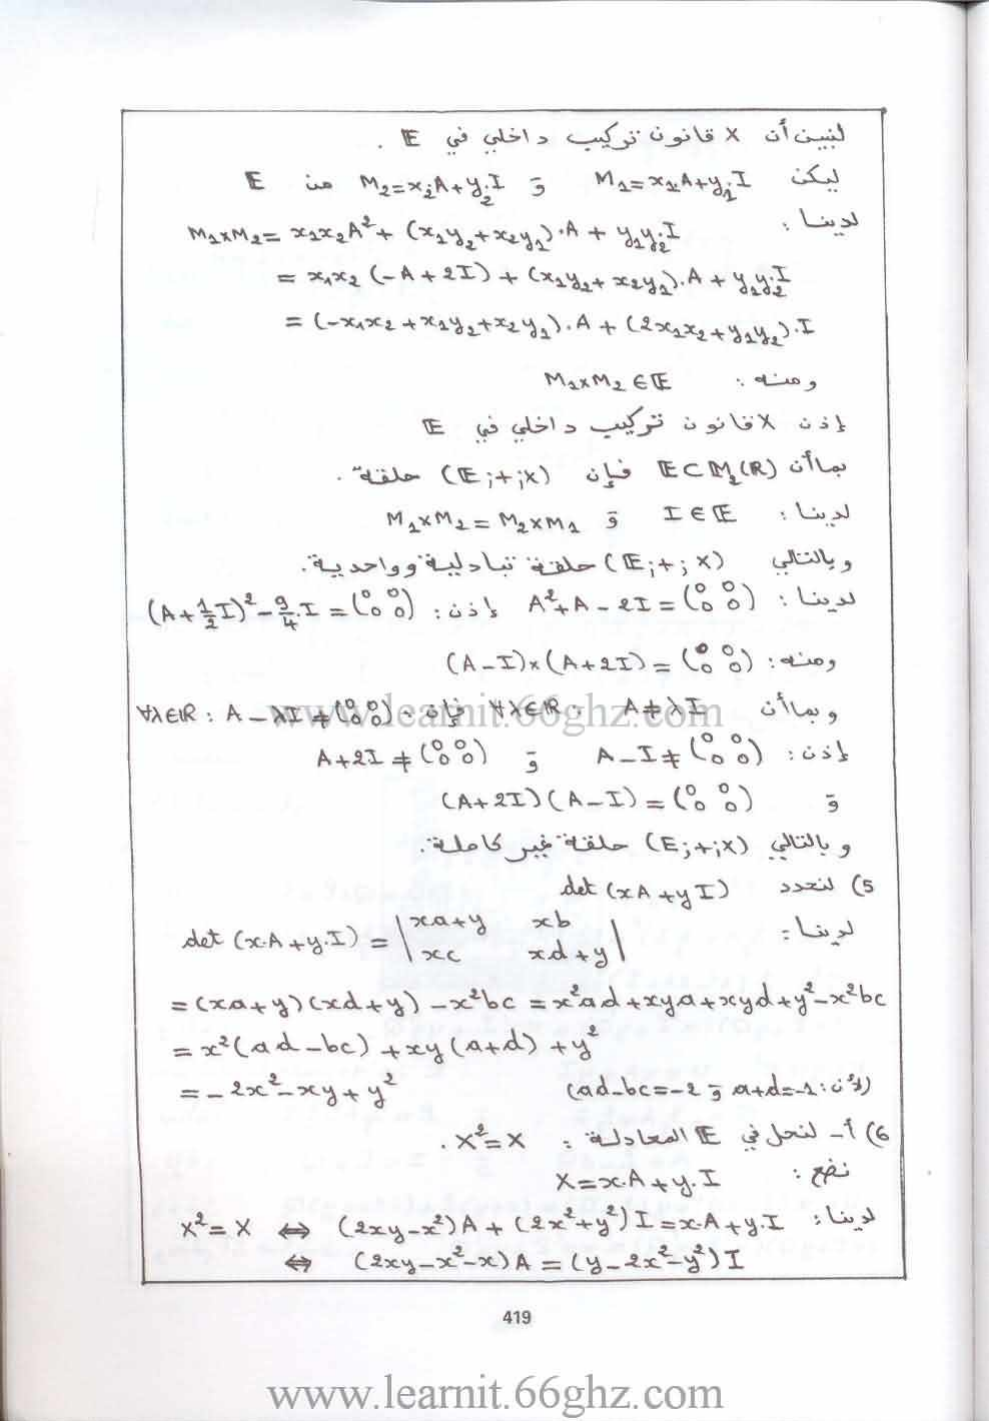 لنبين أن × قانون تركيب داخلي في E .
ليكن M₁=x₁A+y₁.I و M₂=x₂A+y₂.I من E
لدينا : M₁×M₂= x₁x₂A²+ (x₁y₂+x₂y₁).A + y₁y₂.I
= x₁x₂ (-A+2I) + (x₁y₂+x₂y₁).A + y₁y₂.I
= (-x₁x₂+x₁y₂+x₂y₁).A + (2x₁x₂+y₁y₂).I
ومنه : M₁×M₂ ∈ E
إذن × قانون تركيب داخلي في E
بما أن E⊂M₂(R) فإن (E;+;×) حلقة .
لدينا : I∈E و M₁×M₂=M₂×M₁
وبالتالي (E;+;×) حلقة تبادلية وواحدية.
لدينا : A²+A-2I=(0 0 / 0 0) إذن : (A+1/2 I)²-9/4.I=(0 0 / 0 0)
ومنه : (A-I)×(A+2I)=(0 0 / 0 0)
وبما أن ∀λ∈R : A≠λI فإن : ∀λ∈R : A-λI≠(0 0 / 0 0)
إذن : A-I≠(0 0 / 0 0) و A+2I≠(0 0 / 0 0)
و (A+2I)(A-I)=(0 0 / 0 0)
وبالتالي (E;+;×) حلقة غير كاملة.
5) لنحدد det(xA+yI)
لدينا : det(x.A+y.I)=|xa+y xb / xc xd+y|
=(xa+y)(xd+y)-x²bc=x²ad+xya+xyd+y²-x²bc
=x²(ad-bc)+xy(a+d)+y²
=-2x²-xy+y² (لأن : a+d=-1 و ad-bc=-2)
6) أ- لنحل في E المعادلة : X²=X .
نضع : X=x.A+y.I
لدينا : X²=X ⇔ (2xy-x²)A+(2x²+y²)I=x.A+y.I
⇔ (2xy-x²-x)A=(y-2x²-y²)I
419
www.learnit.66ghz.com
www.learnit.66ghz.com